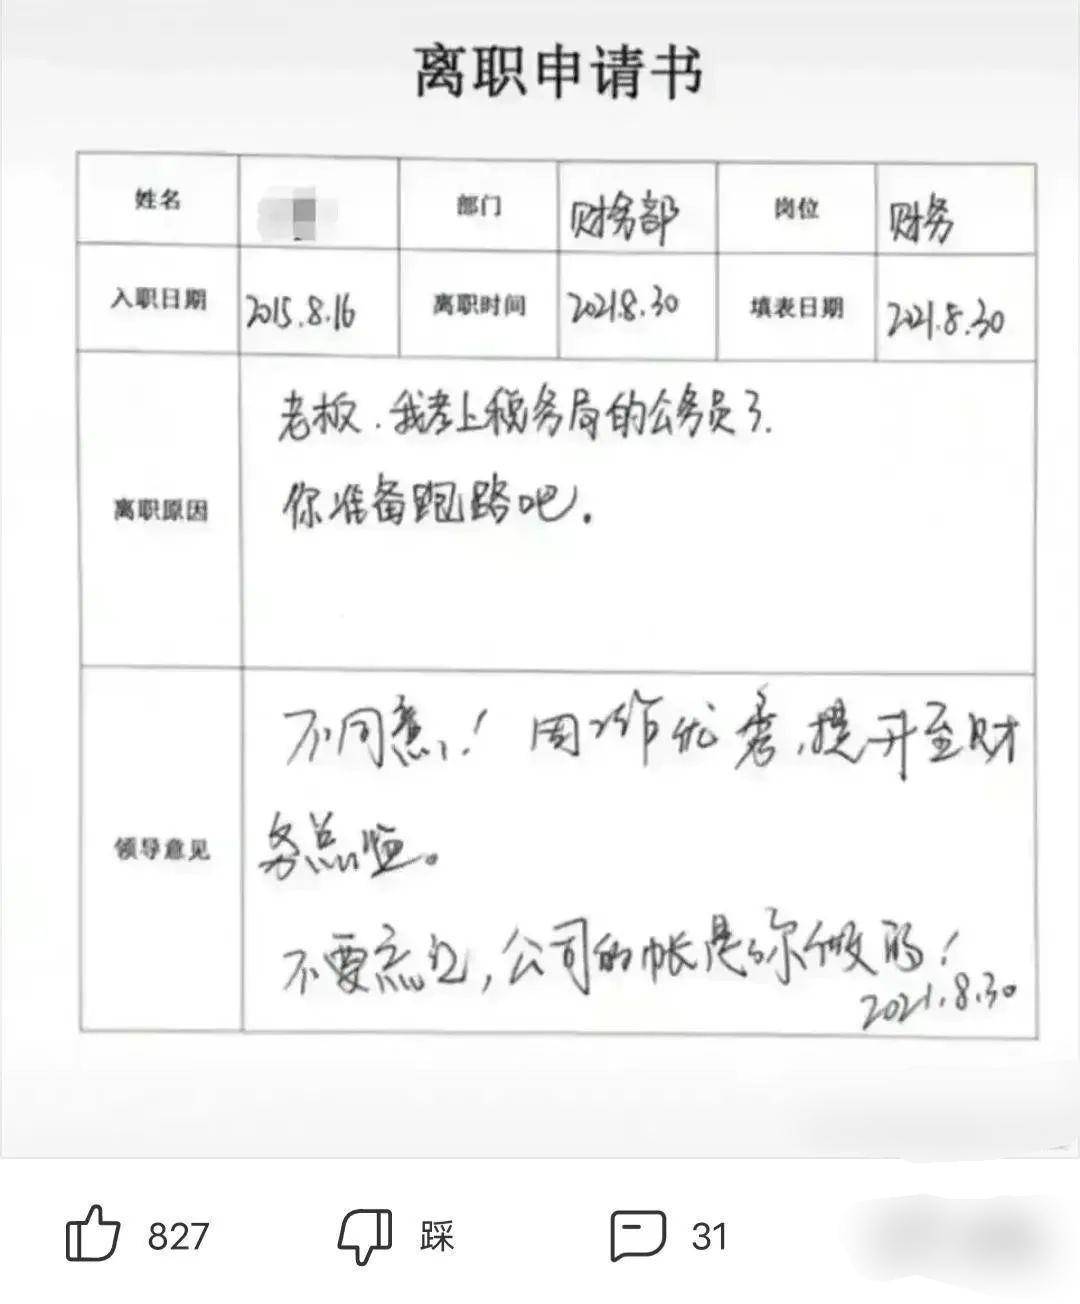 离职申请书
姓名 部门 财务部 岗位 财务
入职日期 2015.8.16 离职时间 2021.8.30 填表日期 2021.8.30
离职原因
老板.我考上税务局的公务员了.
你准备跑路吧.
领导意见
不同意!因工作优秀,提升至财
务总监。
不要忘记,公司的帐是你做的!
2021.8.30
827 踩 31